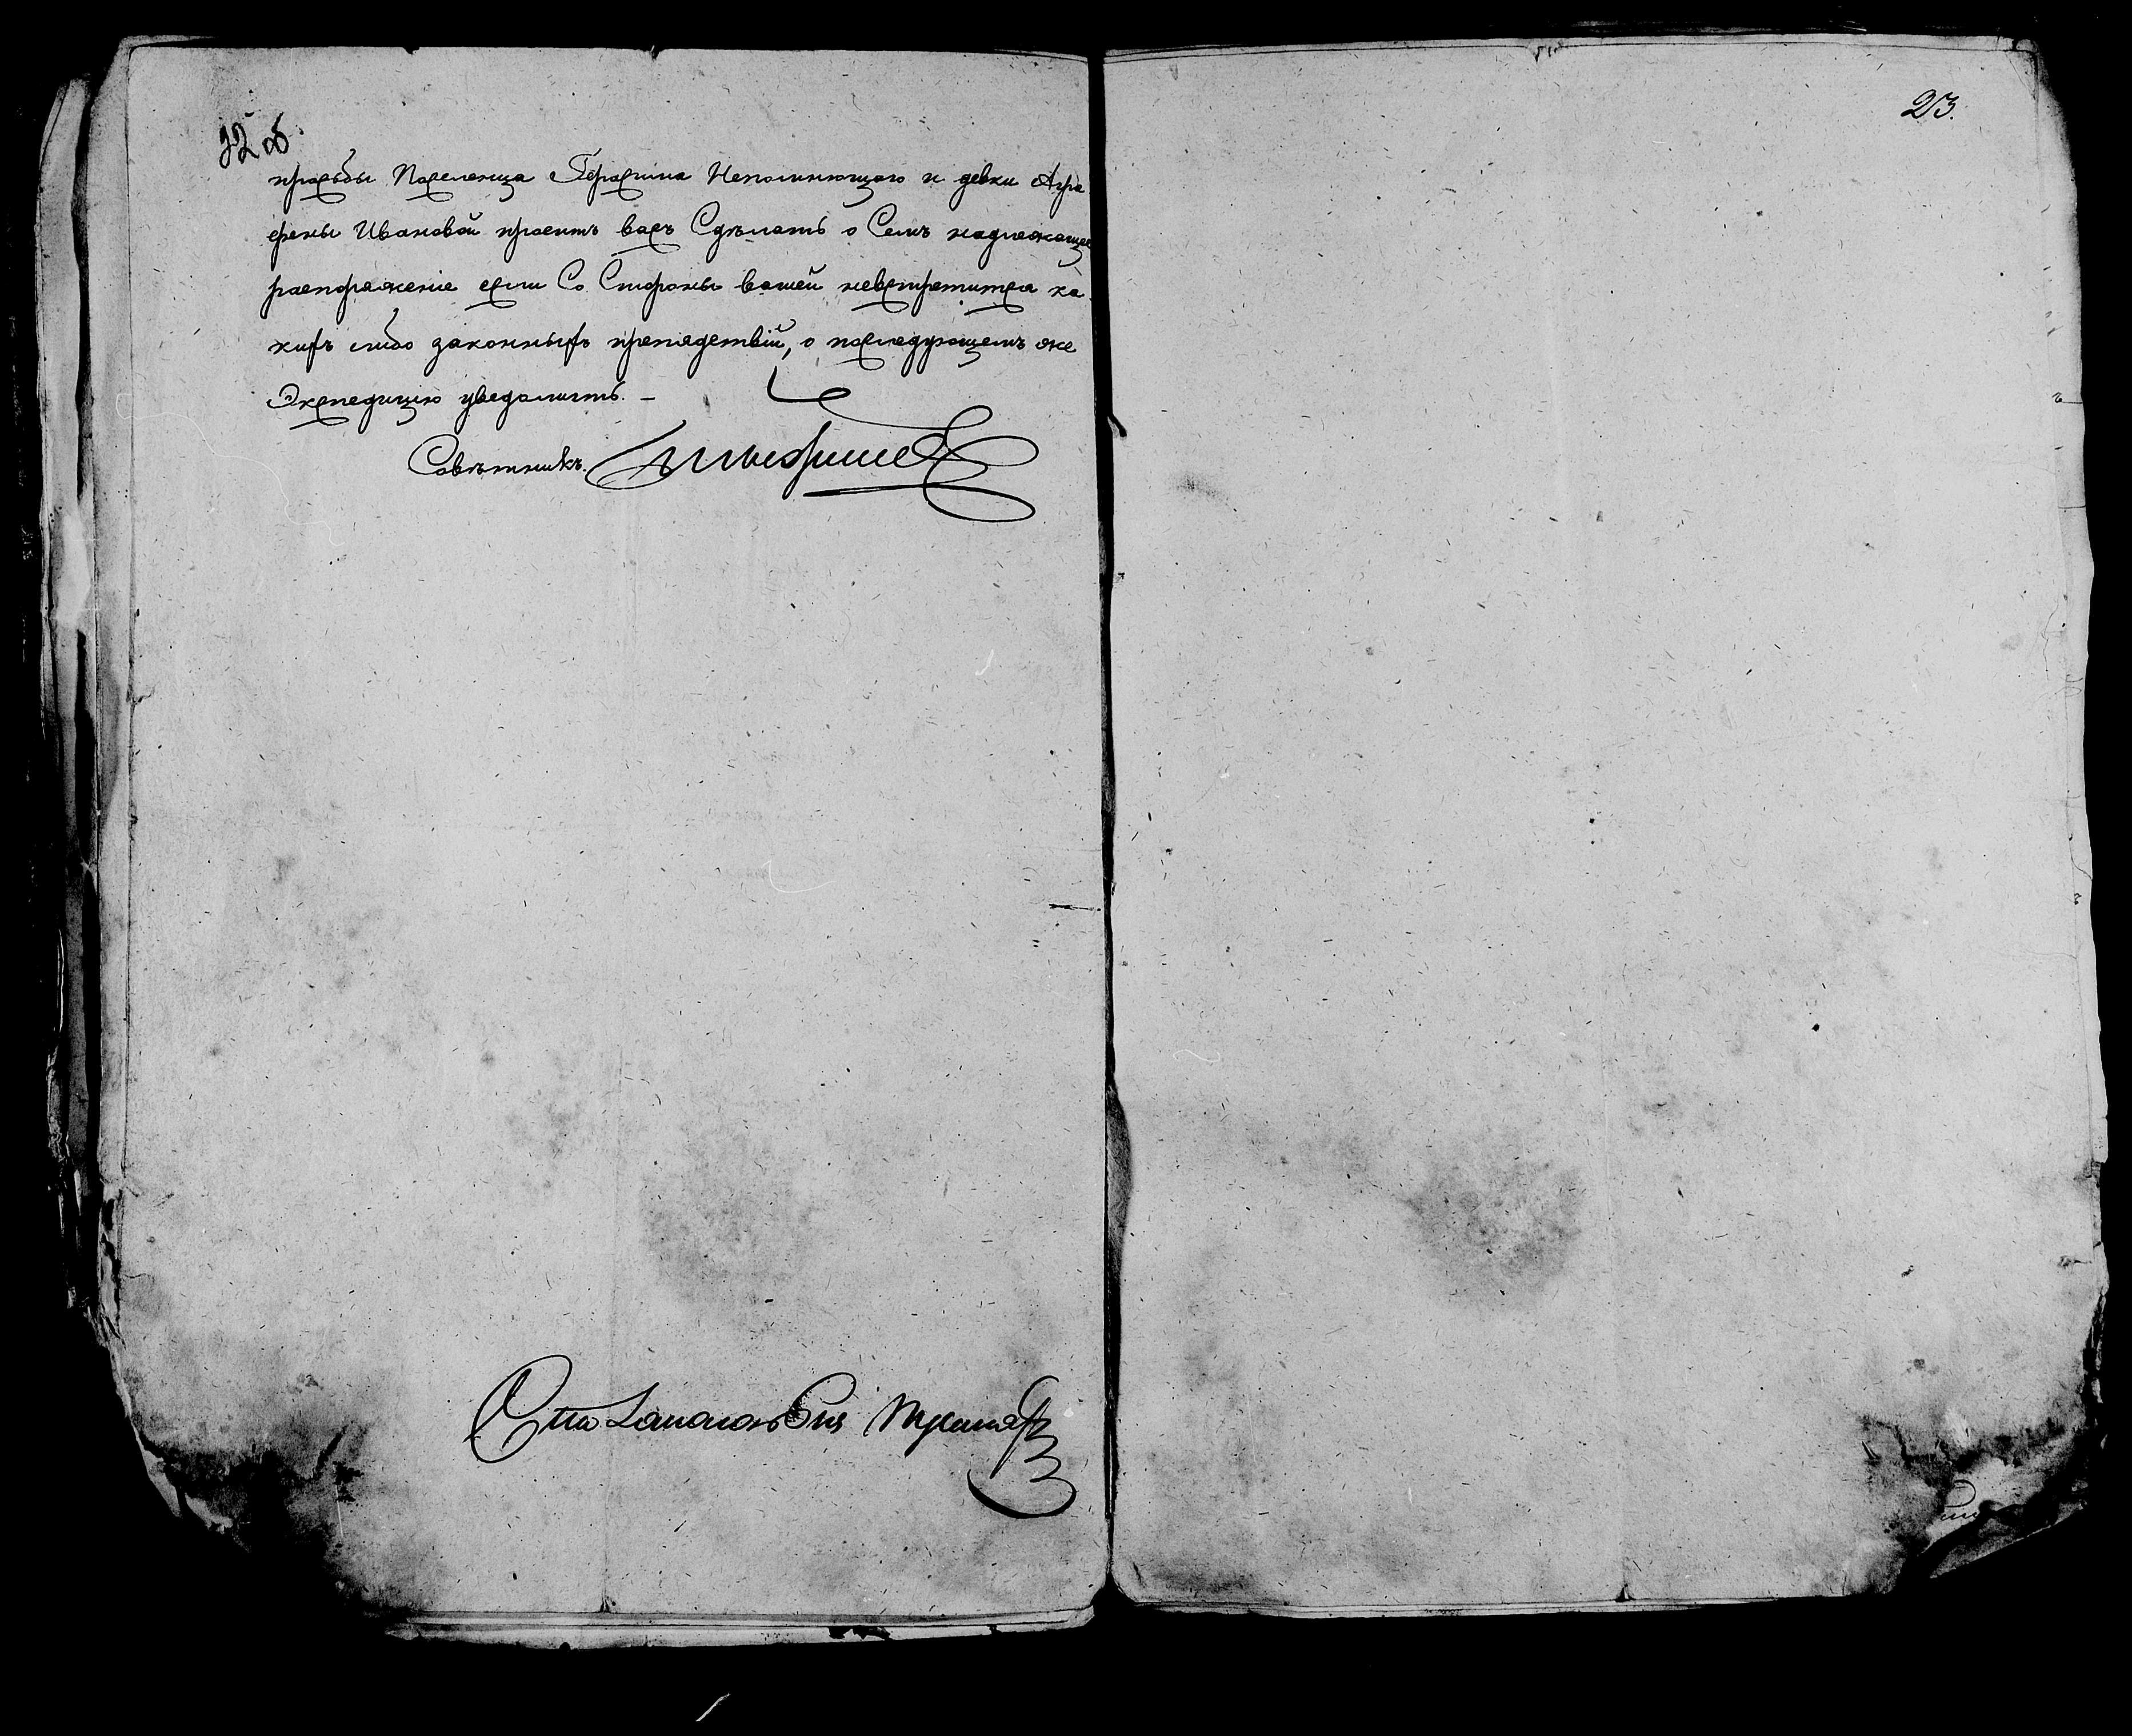 22 об.
просьбы Поселенца Герасима Непомнющаго и девки Агра
фены Ивановой проситъ васъ Сдѣлать о Семъ надлежащее
распоряжение если Со Стороны вашей невстретится ка
кихъ либо законныхъ препядствій, о последующемъ же
Экспедицію уведомить. –
Совѣтникъ.
23.